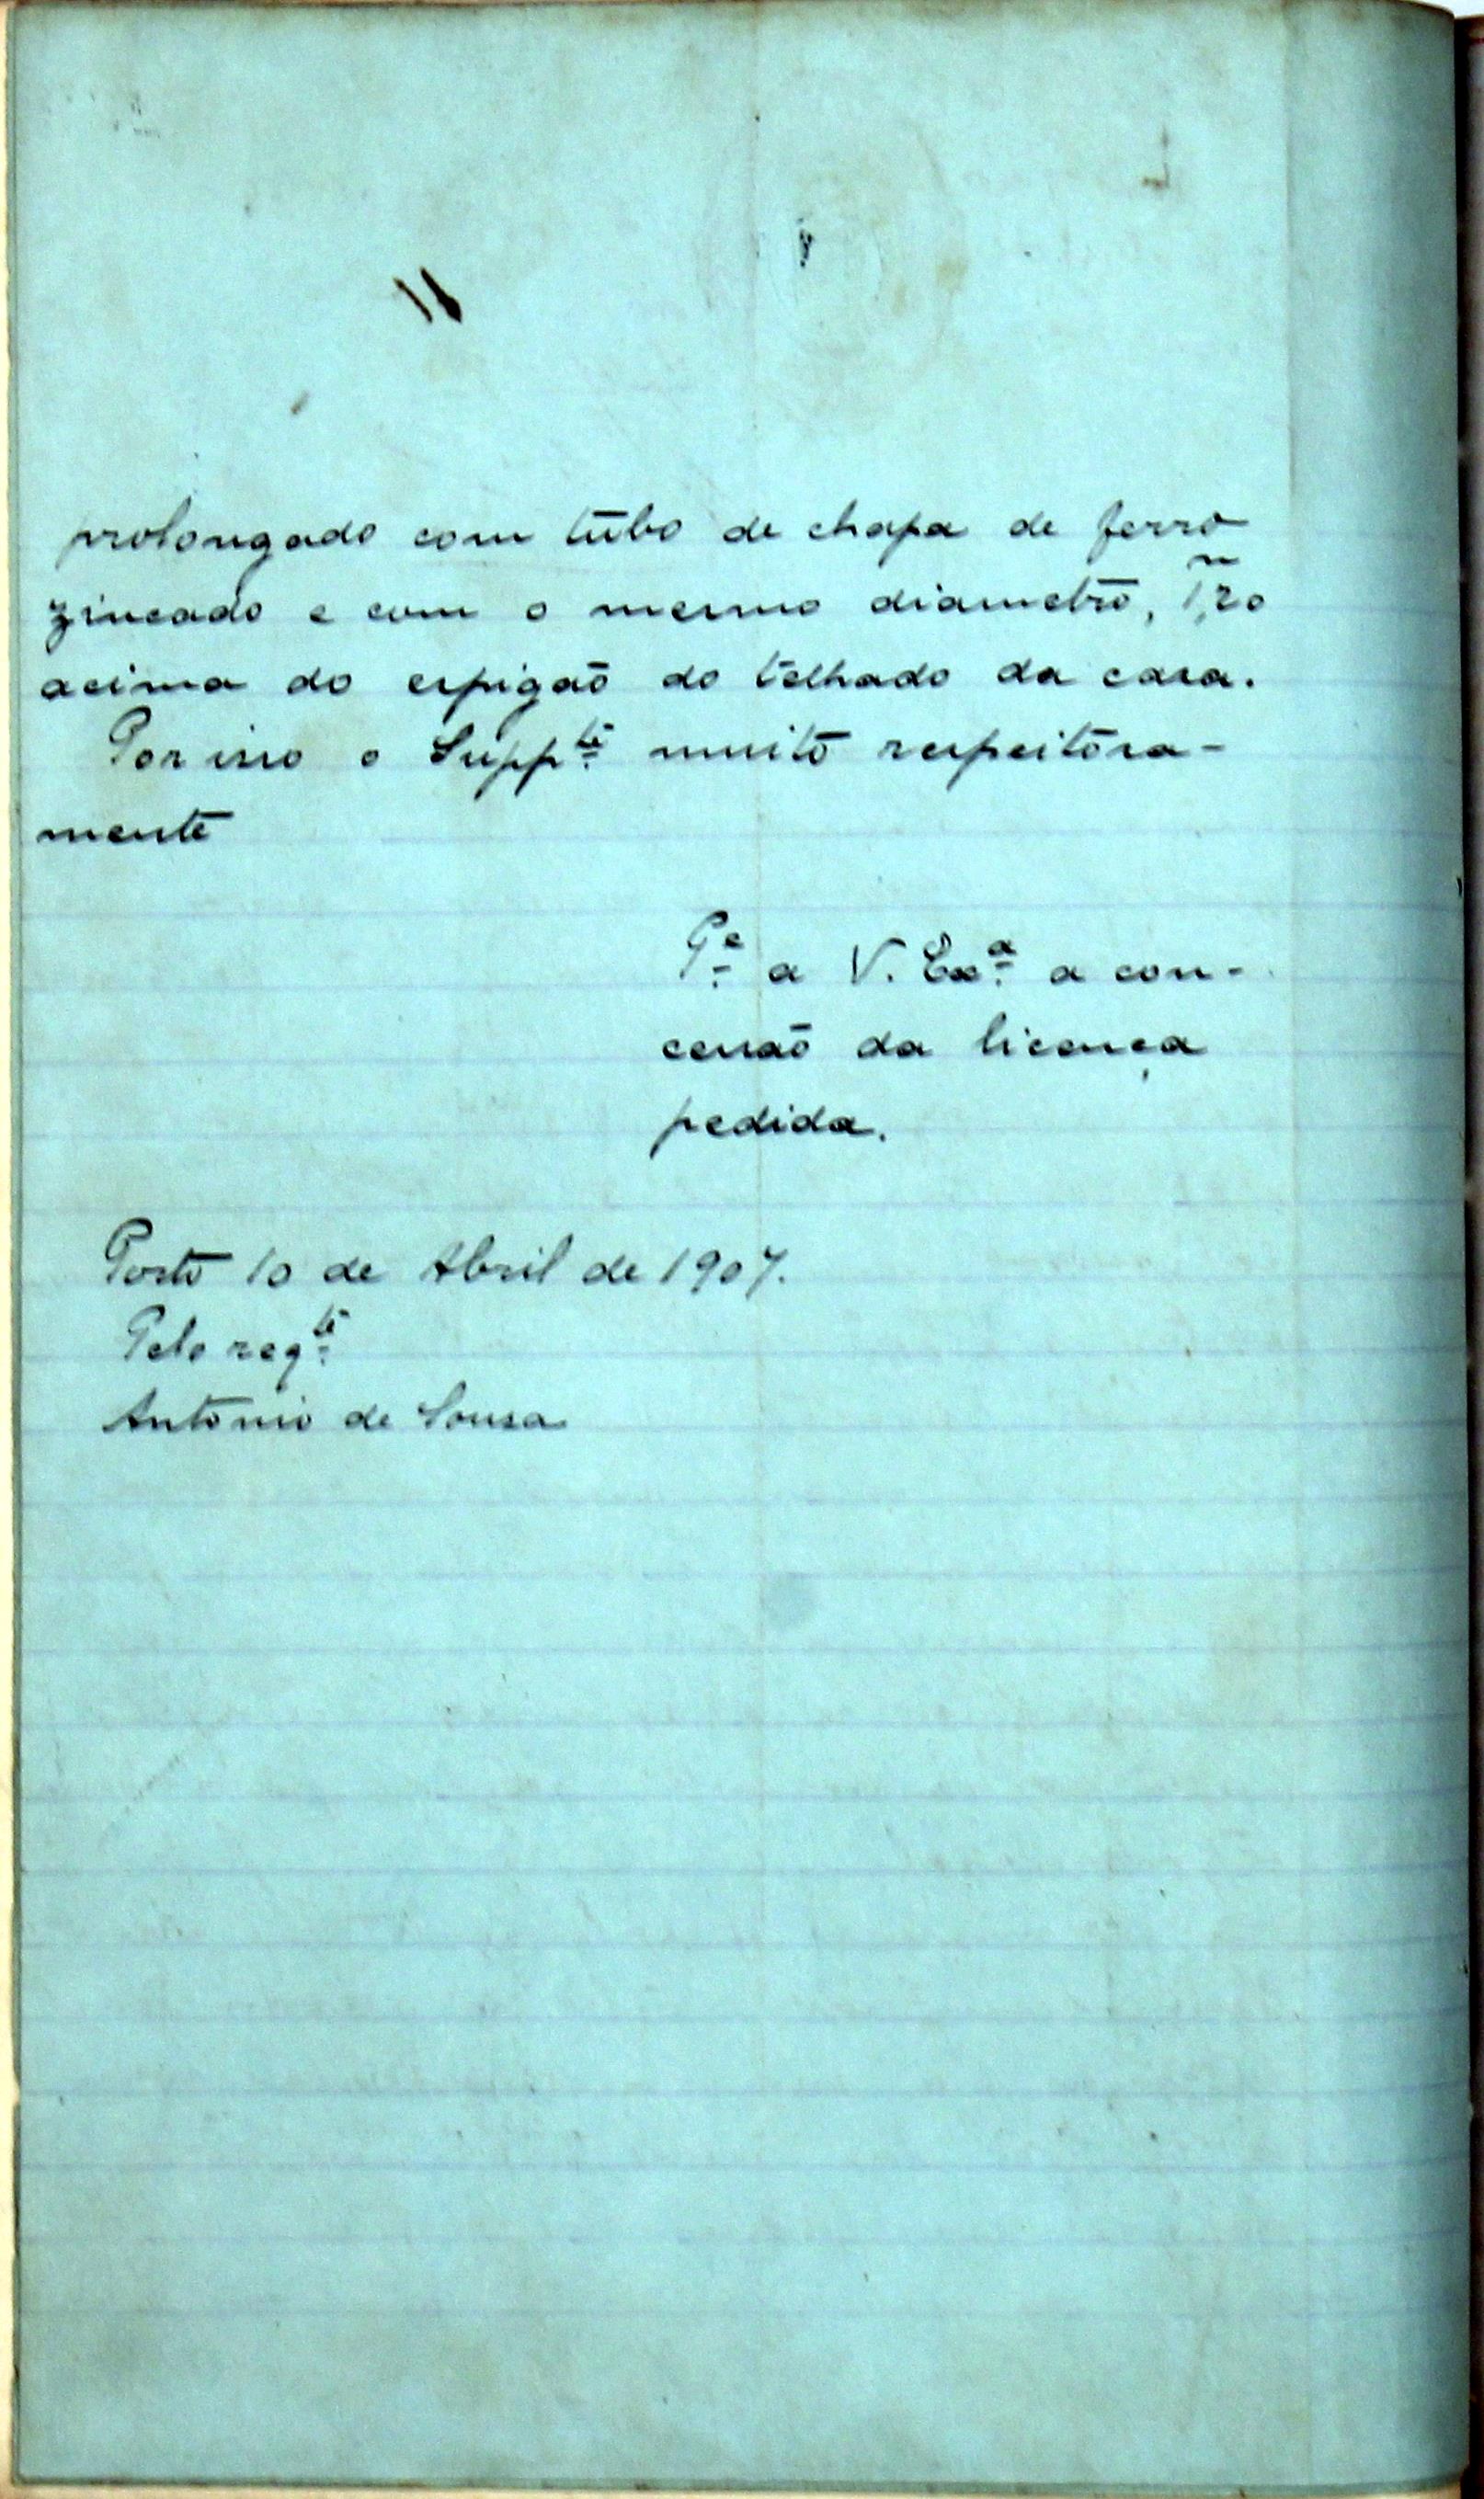 prolongado com tubo de chapa de ferro
zincado e com o mesmo diametro, 1,ᵐ20
acima do espigão do telhado da casa.
Por isso o Supp.te muito respeitosa-
mente
P.e a V. Ex.a a con-
cessão da licença
pedida.
Porto 10 de Abril de 1907.
Pelo req.te
Antonio de Sousa